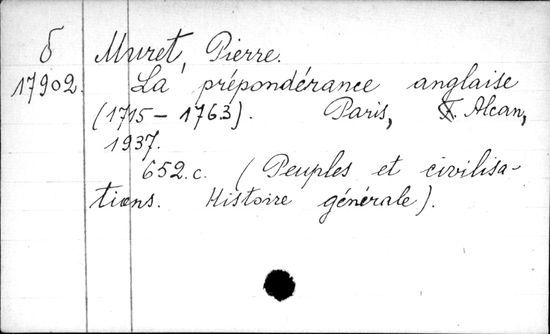 б Muret, Pierre.
17902. La prépondérance anglaise
(1715-1763). Paris, F. Alcan,
1937.
652.c. (Peuples et civilisa-
tions. Histoire générale).